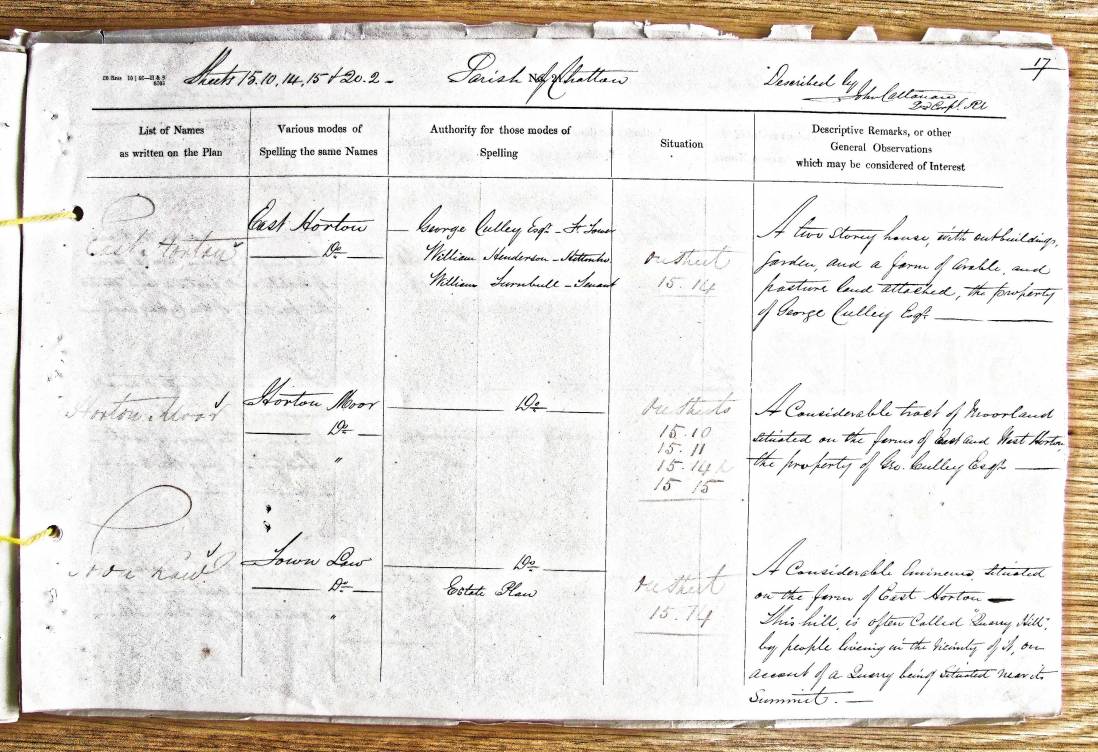 17
Sheets 15.10, 14, 15 & 20.2 -
Parish of Chatton
Described by
John Cattanan
2nd Corpl. RE
List of Names
as written on the Plan
Various modes of
Spelling the same Names
Authority for those modes of
Spelling
Situation
Descriptive Remarks, or other
General Observations
which may be considered of Interest
East Horton
East Horton
Do
George Culley Esqr. - Ft Tower
William Henderson -
William Turnbull - Tenant
On Sheet
15. 14
A two storey house, with outbuildings,
Garden, and a farm of arable, and
pasture land attached, the property
of George Culley Esqr.
Horton Moor
Horton Moor
Do
"
Do
On Sheets
15. 10
15. 11
15. 14 &
15 15
A Considerable tract of Moorland
situated on the farms of East and West Horton,
the property of Geo. Culley Esqr.
Town Law
Do
"
Do
Estate Plan
On Sheet
15. 14
A Considerable Eminence, situated
on the farm of East Horton -
This hill, is often Called "Quarry Hill",
by people liveing in the Vicinity of it, on
account of a Quarry being situated near its
Summit. -